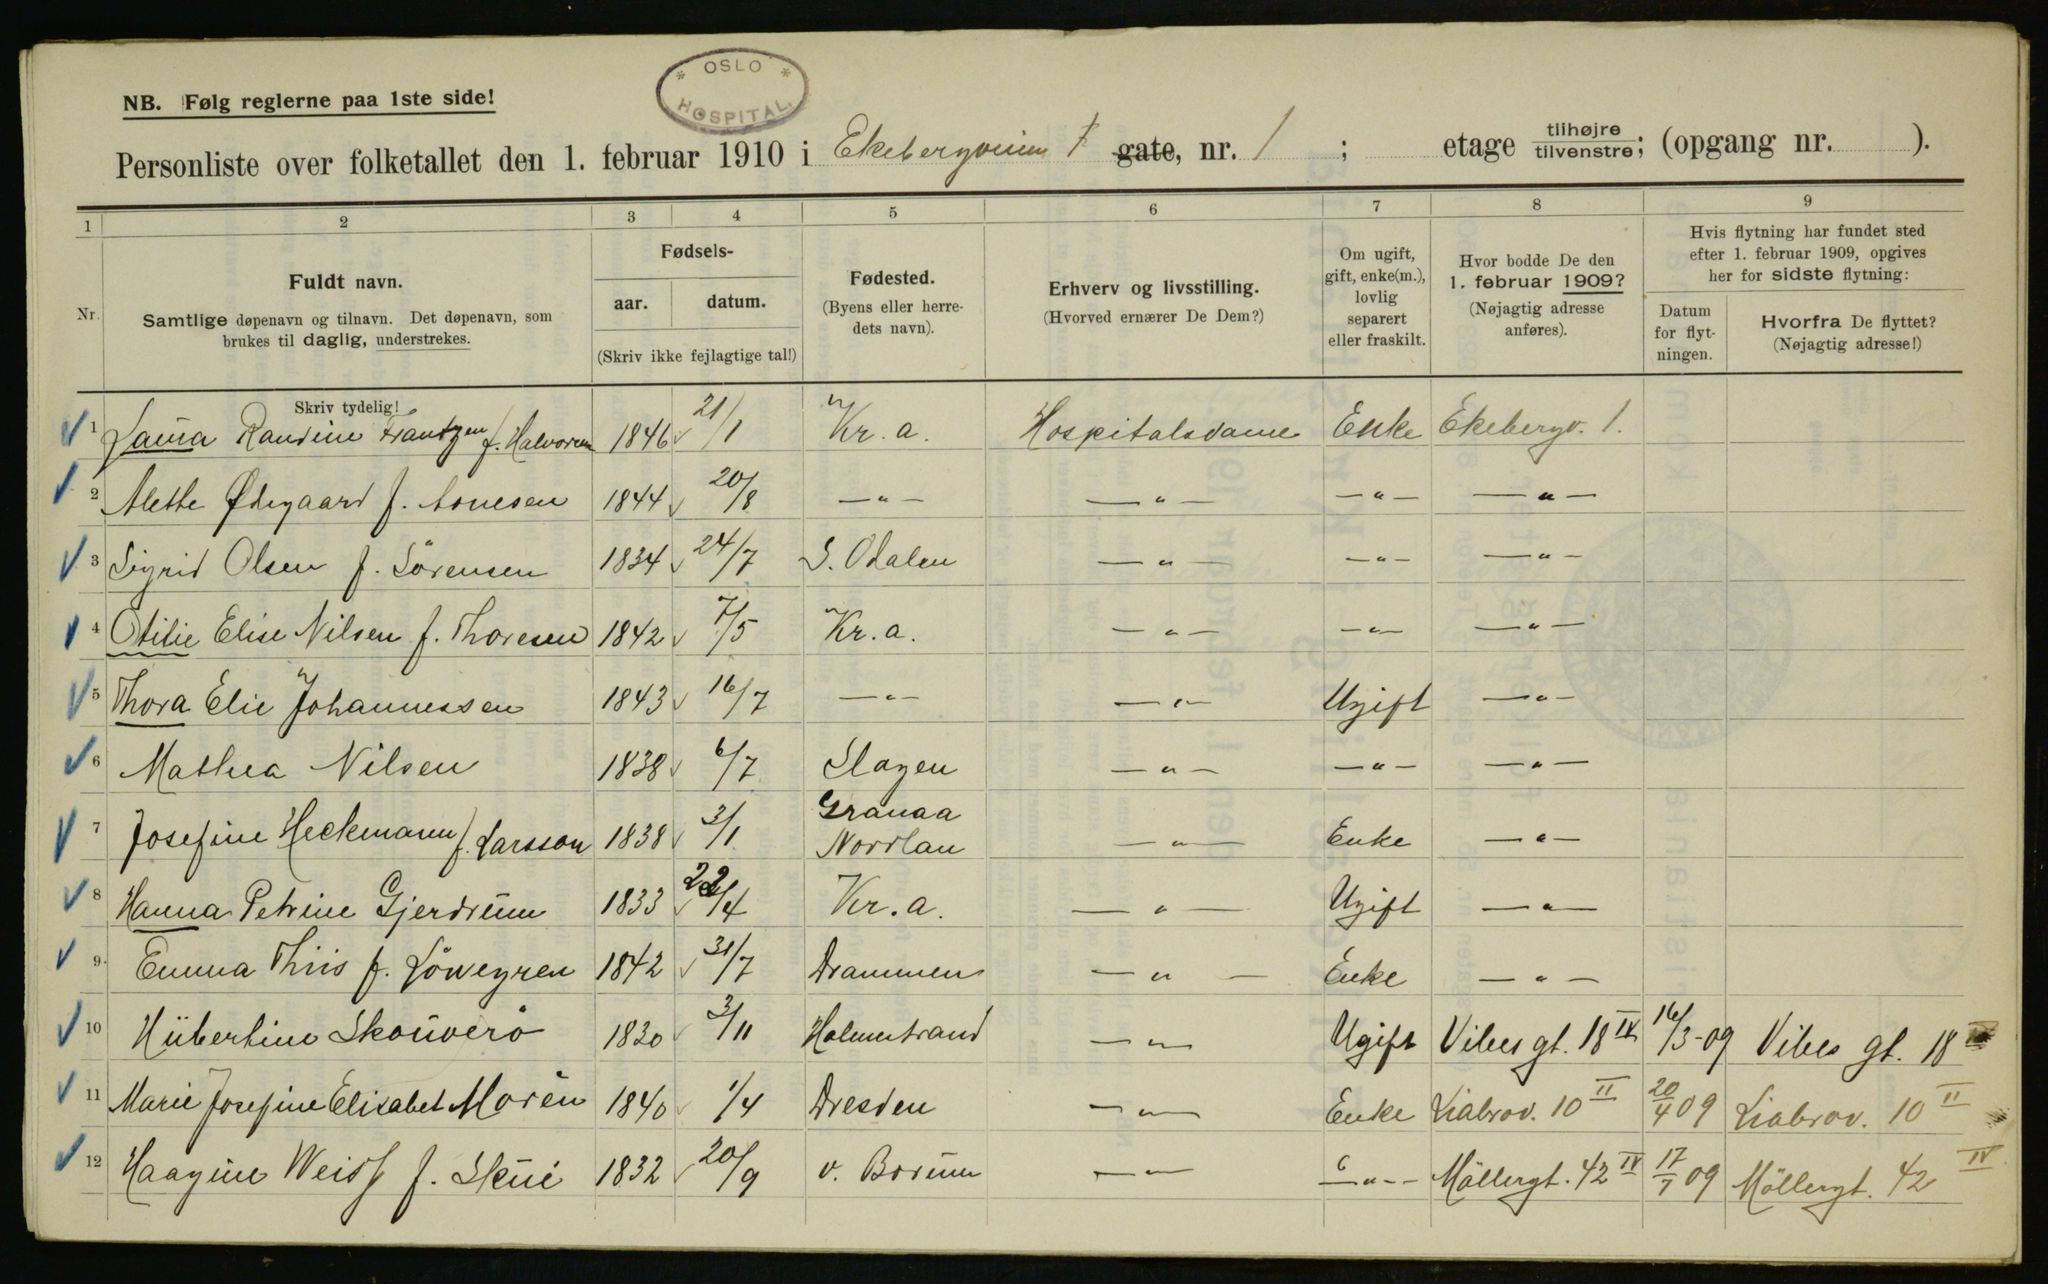 NB. Følg reglerne paa 1ste side!
* OSLO * HOSPITAL.
Personliste over folketallet den 1. februar 1910 i Ekebergveien 1 gate, nr. 1 ; etage tilhøjre tilvenstre; (opgang nr. ).
1 2 3 4 5 6 7 8 9
Nr.
Fuldt navn.
Samtlige døpenavn og tilnavn. Det døpenavn, som
brukes til daglig, understrekes.
Fødsels-
aar. datum.
(Skriv ikke fejlagtige tal!)
Fødested.
(Byens eller herre-
dets navn).
Erhverv og livsstilling.
(Hvorved ernærer De Dem?)
Om ugift,
gift, enke(m.),
lovlig
separert
eller fraskilt.
Hvor bodde De den
1. februar 1909?
(Nøjagtig adresse
anføres).
Hvis flytning har fundet sted
efter 1. februar 1909, opgives
her for sidste flytning:
Datum
for flyt-
ningen.
Hvorfra De flyttet?
(Nøjagtig adresse!)
Skriv tydelig!
1 Laura Randine Frantzen f. Halvorsen 1846 21/1 Kr. a. Hospitalsdame Enke Ekebergv. 1.
2 Alette Ødegaard f. Arnesen 1844 20/8 —"— —"— —"— —"—
3 Sigrid Olsen f. Sörensen 1834 24/7 S. Odalen —"— —"— —"—
4 Otilie Elise Nilsen f. Thoresen 1842 7/5 Kr. a. —"— —"— —"—
5 Thora Elie Johannessen 1843 16/7 —"— —"— Ugift —"—
6 Mathea Nilsen 1838 6/7 Slagen —"— —"— —"—
7 Josefine Heckmann f. Larsson 1838 3/1 Granaa Norrlan —"— Enke —"—
8 Hanna Petrine Gjerdrum 1833 22/4 Kr. a. —"— Ugift —"—
9 Emma Thiis f. Löwegren 1842 31/7 Drammen —"— Enke —"—
10 Hübertine Skouverö 1830 3/11 Holmestrand —"— Ugift Vibes gt. 18 IV 16/3-09 Vibes gt. 18
11 Marie Josefine Elisabet Morén 1840 1/4 Dresden —"— Enke Liabrov. 10 II 20/4 09 Liabrov. 10 II
12 Haagine Weiss f. Skui 1832 20/9 v. Bærum —"— —"— Möllergt. 42 IV 17/7 09 Möllergt. 42 IV